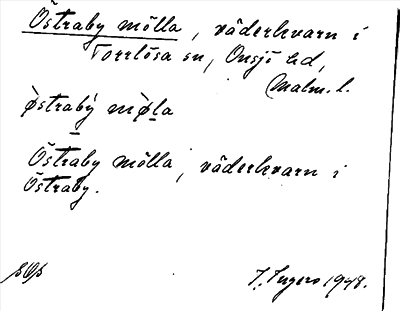 Östraby mölla, väderkvarn i
Torrlösa sn, Onsjö hd,
Malm. l.
östraby møla
Östraby mölla, väderkvarn i
Östraby.
I. Ingers 1948.